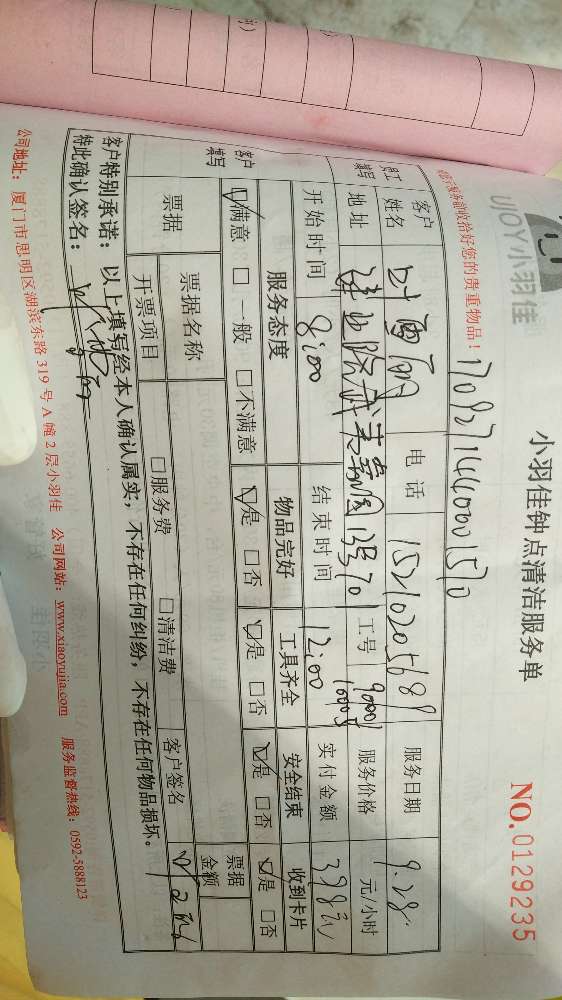 JOY小羽佳
小羽佳钟点清洁服务单
NO.0129235
收拾好您的贵重物品！
客户姓名 电话 15210205689 服务日期 9.28
地址 工号 服务价格 元/小时
开始时间 8:00 结束时间 12:00 实付金额 398元
员工填写
服务态度 物品完好 工具齐全 安全结束 收到卡片
☑满意 □一般 □不满意 ☑是 □否 ☑是 □否 ☑是 □否 ☑是 □否
客户填写
票据 票据名称 票据金额
开票项目 □服务费 □清洁费 客户签名
客户特别承诺：以上填写经本人确认属实，不存在任何纠纷，不存在任何物品损坏。
特此确认签名：
公司地址：厦门市思明区湖滨东路319号A幢2层小羽佳 公司网站：www.xiaoyujia.com 服务监督热线：0592-5888123